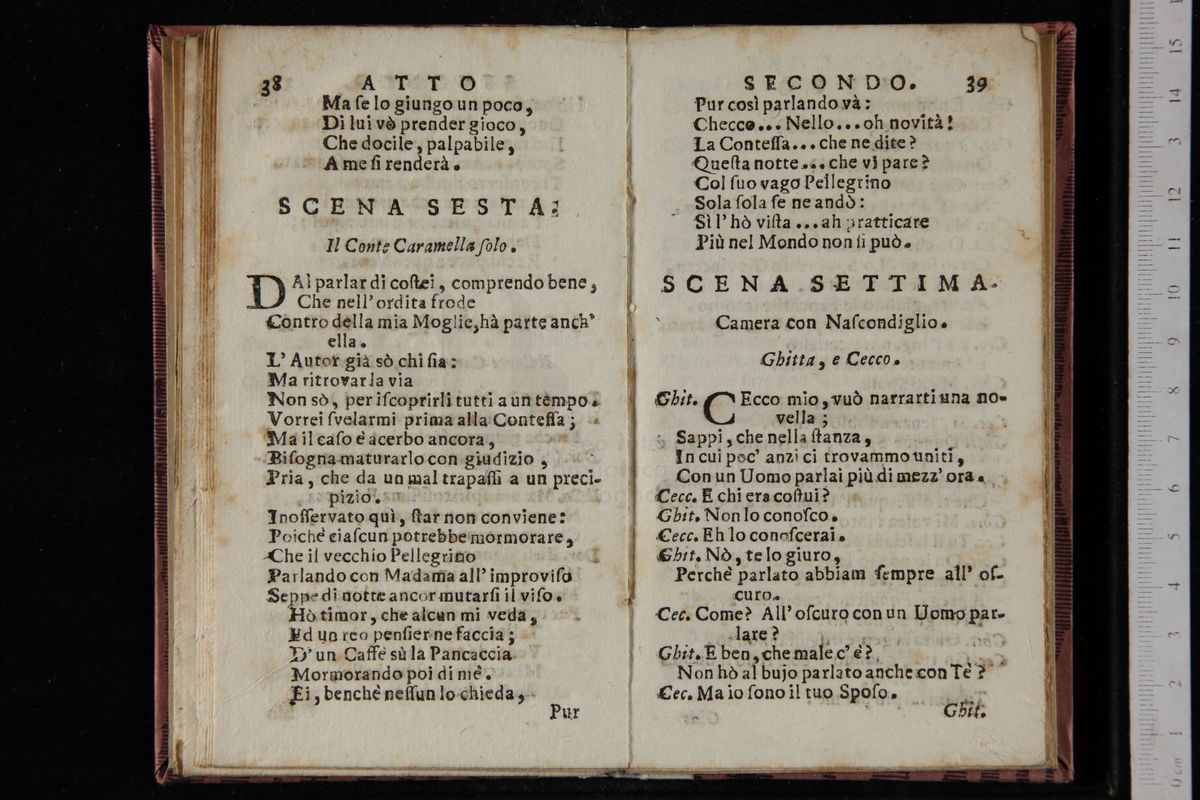 38 ATTO
Ma ſe lo giungo un poco,
Di lui vò prender gioco,
Che docile, palpabile,
A me ſi renderà.
SCENA SESTA.
Il Conte Caramella ſolo.
DAl parlar di coſtei, comprendo bene,
Che nell' ordita frode
Contro della mia Moglie, hà parte anch'
ella.
L' Autor già sò chi ſia:
Ma ritrovar la via
Non sò, per iſcoprirli tutti a un tempo.
Vorrei ſvelarmi prima alla Conteſſa;
Ma il caſo è acerbo ancora,
Biſogna maturarlo con giudizio,
Pria, che da un mal trapaſſi a un preci-
pizio.
Inoſſervato quì, ſtar non conviene:
Poichè ciaſcun potrebbe mormorare,
Che il vecchio Pellegrino
Parlando con Madama all' improviſo
Seppe di notte ancor mutarſi il viſo.
Hò timor, che alcun mi veda,
Ed un reo penſier ne faccia;
D' un Caffè sù la Pancaccia
Mormorando poi di mè.
Ei, benchè neſſun lo chieda,
Pur
SECONDO. 39
Pur così parlando và:
Checco... Nello... oh novità!
La Conteſſa... che ne dite?
Queſta notte... che vi pare?
Col ſuo vago Pellegrino
Sola ſola ſe ne andò:
Sì l' hò viſta... ah pratticare
Più nel Mondo non ſi può.
SCENA SETTIMA.
Camera con Naſcondiglio.
Ghitta, e Cecco.
Ghit. CEcco mio, vuò narrarti una no-
vella;
Sappi, che nella ſtanza,
In cui poc' anzi ci trovammo uniti,
Con un Uomo parlai più di mezz' ora.
Cecc. E chi era coſtui?
Ghit. Non lo conoſco.
Cecc. Eh lo conoſcerai.
Ghit. Nò, te lo giuro,
Perchè parlato abbiam ſempre all' oſ-
curo.
Cec. Come? All' oſcuro con un Uomo par-
lare?
Ghit. E ben, che male c' è?
Non hò al bujo parlato anche con Tè?
Cec. Ma io ſono il tuo Spoſo.
Ghit.
0 cm 1 2 3 4 5 6 7 8 9 10 11 12 13 14 15